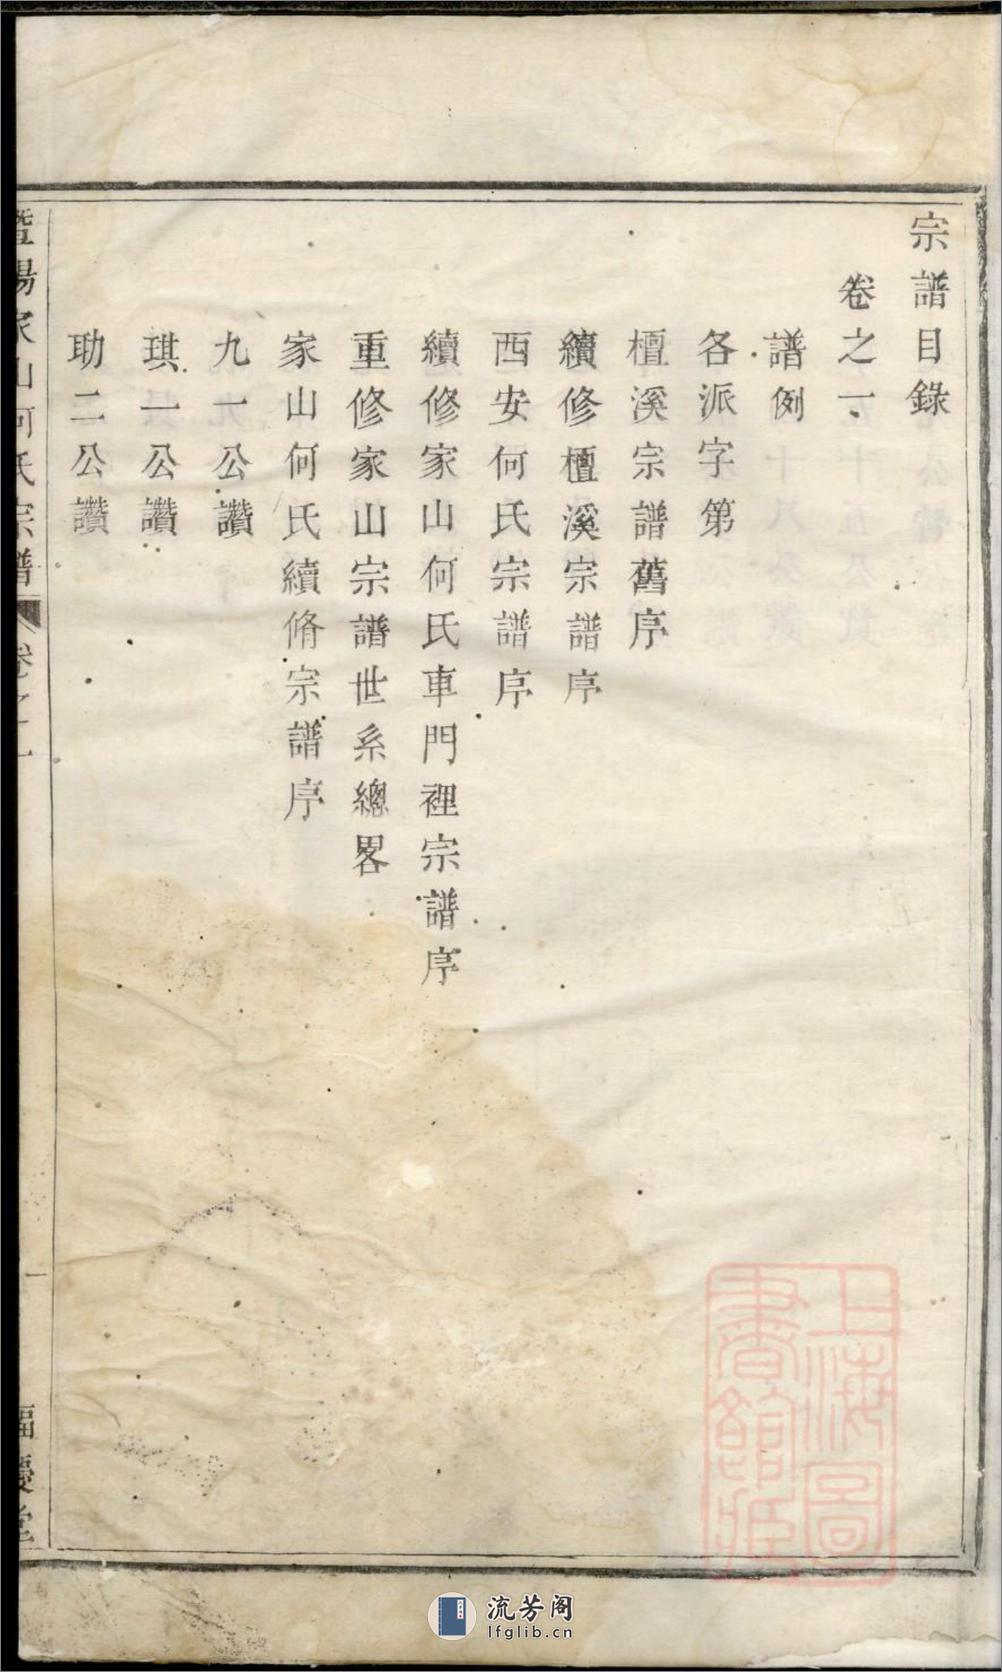 宗譜目錄
卷之一
譜例
各派字第
檀溪宗譜舊序
續修檀溪宗譜序
西安何氏宗譜序
續修家山何氏車門裡宗譜序
重修家山宗譜世系總畧
家山何氏續脩宗譜序
九一公讚
琪一公讚
助二公讚
暨陽家山何氏宗譜
卷之一
一
福慶堂
上海圖書館藏
流芳阁
lfglib.cn